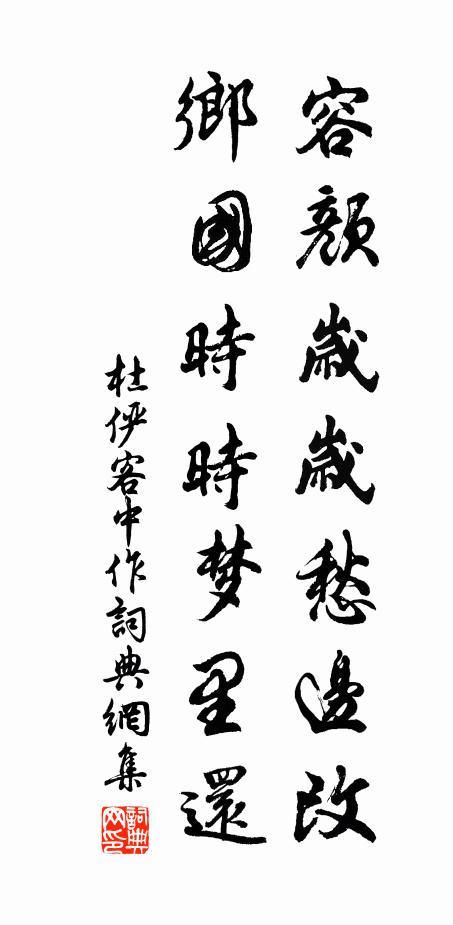 容顏歲歲愁邊改
鄉國時時梦里還
杜俨客中作詞典網集
詞典网印